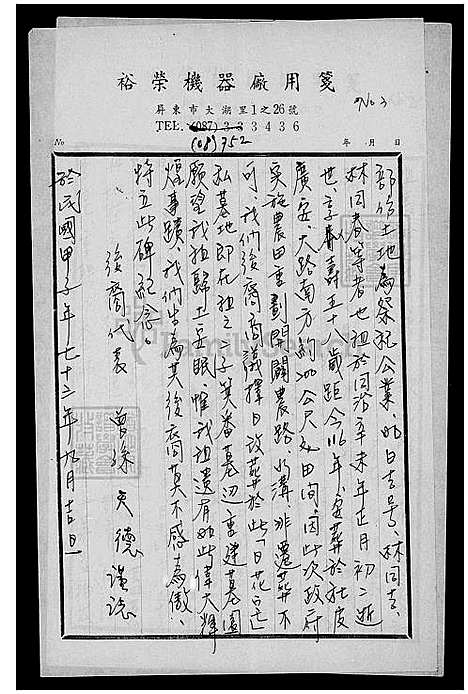 裕榮機器廠用箋
屏東市大湖里1之26號
TEL:(087)333436
(08)752
No 3
No 年 月 日
部份土地為祭祀公業、明日吉号、林同吉、
林同春等者也祖於同治辛未年正月初二逝
世、享壽五十 歲距今116年、安葬於社皮
廣安、大路南方約200公尺處田間、因此次政府
實施農田重劃開闢農路、水溝、非遷葬不
可、我們後裔商議擇日改葬於此、
私墓地即在祖之 子 番墓边重建墓園
願望我祖歸土安眠、惟我祖遺有如此偉大輝
煌事蹟、我們生為其後裔莫不感為傲、
特立此碑紀念。
後裔代表 曾孫天德謹誌
於民國甲子年七十三年九月吉旦